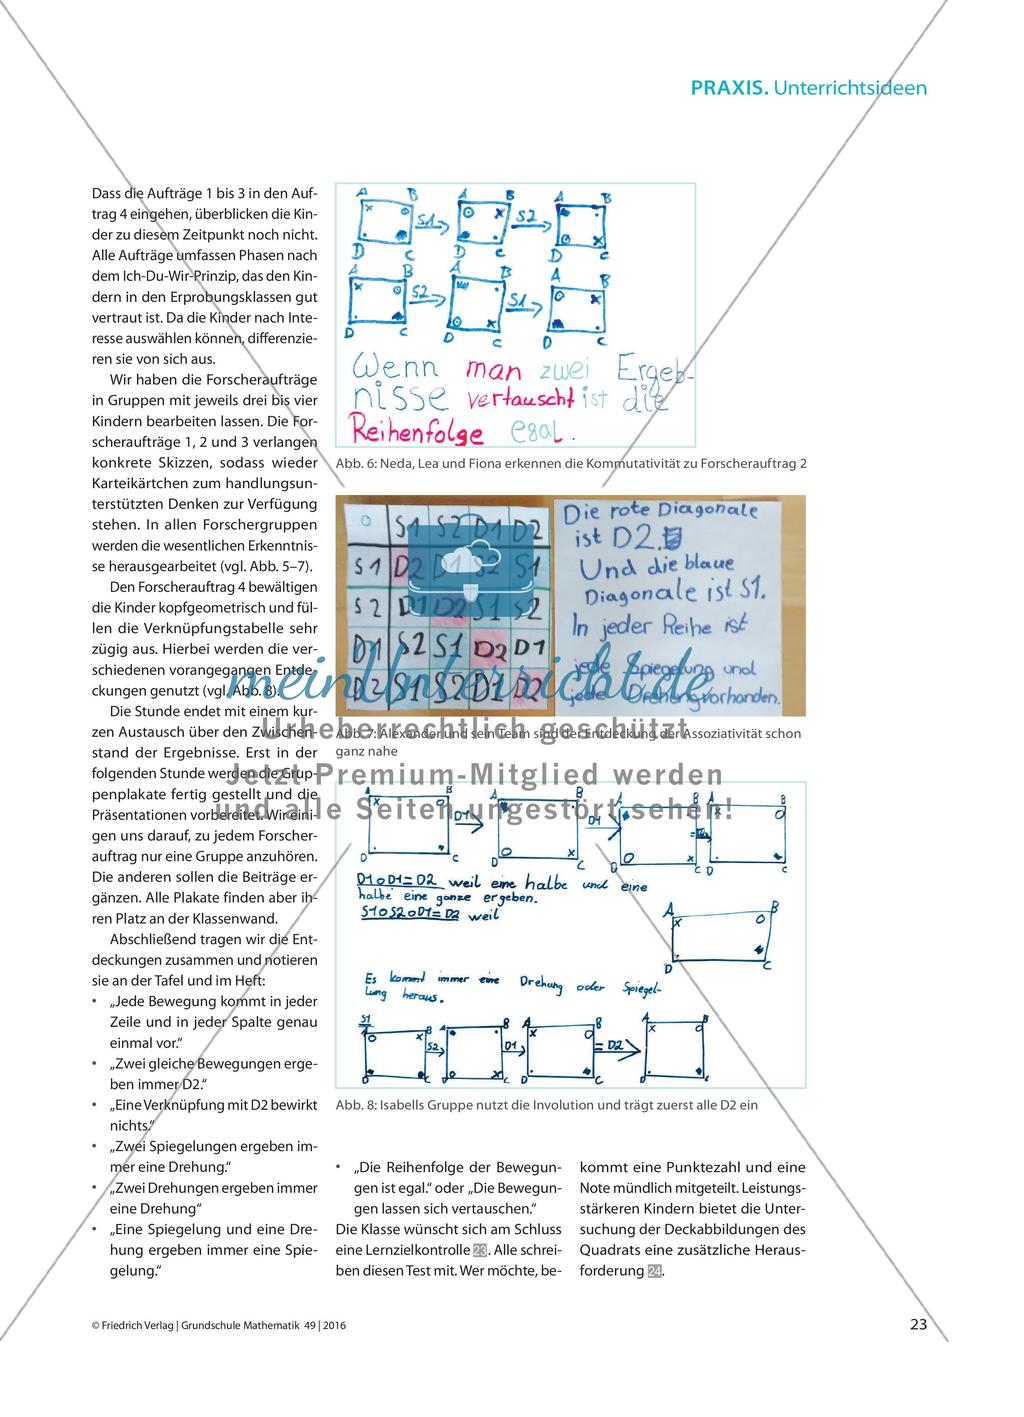 PRAXIS. Unterrichtsideen
Dass die Aufträge 1 bis 3 in den Auf-
trag 4 eingehen, überblicken die Kin-
der zu diesem Zeitpunkt noch nicht.
Alle Aufträge umfassen Phasen nach
dem Ich-Du-Wir-Prinzip, das den Kin-
dern in den Erprobungsklassen gut
vertraut ist. Da die Kinder nach Inte-
resse auswählen können, differenzie-
ren sie von sich aus.
Wir haben die Forscheraufträge
in Gruppen mit jeweils drei bis vier
Kindern bearbeiten lassen. Die For-
scheraufträge 1, 2 und 3 verlangen
konkrete Skizzen, sodass wieder
Karteikärtchen zum handlungsun-
terstützten Denken zur Verfügung
stehen. In allen Forschergruppen
werden die wesentlichen Erkenntnis-
se herausgearbeitet (vgl. Abb. 5–7).
Den Forscherauftrag 4 bewältigen
die Kinder kopfgeometrisch und fül-
len die Verknüpfungstabelle sehr
zügig aus. Hierbei werden die ver-
schiedenen vorangegangen Entde-
ckungen genutzt (vgl. Abb. 8).
Die Stunde endet mit einem kur-
zen Austausch über den Zwischen-
stand der Ergebnisse. Erst in der
folgenden Stunde werden die Grup-
penplakate fertig gestellt und die
Präsentationen vorbereitet. Wir eini-
gen uns darauf, zu jedem Forscher-
auftrag nur eine Gruppe anzuhören.
Die anderen sollen die Beiträge er-
gänzen. Alle Plakate finden aber ih-
ren Platz an der Klassenwand.
Abschließend tragen wir die Ent-
deckungen zusammen und notieren
sie an der Tafel und im Heft:
• „Jede Bewegung kommt in jeder
Zeile und in jeder Spalte genau
einmal vor.“
• „Zwei gleiche Bewegungen erge-
ben immer D2.“
• „Eine Verknüpfung mit D2 bewirkt
nichts.“
• „Zwei Spiegelungen ergeben im-
mer eine Drehung.“
• „Zwei Drehungen ergeben immer
eine Drehung“
• „Eine Spiegelung und eine Dre-
hung ergeben immer eine Spie-
gelung.“
A B A B A B
S1 S2
D C D C D C
A B A B A B
S2 S1
D C D C D C
Wenn man zwei Ergeb-
nisse vertauscht ist die
Reihenfolge egal.
Abb. 6: Neda, Lea und Fiona erkennen die Kommutativität zu Forscherauftrag 2
o S1 S2 D1 D2
S1 D2 D1 S2 S1
S2 D1 D2 S1 S2
D1 S2 S1 D2 D1
D2 S1 S2 D1 D2
Die rote Diagonale
ist D2.
Und die blaue
Diagonale ist S1.
In jeder Reihe ist
jede Spiegelung und
jede Drehung vorhanden.
meinUnterricht.de
Urheberrechtlich geschützt
Jetzt Premium-Mitglied werden
und alle Seiten ungestört sehen!
Abb. 7: Alexander und sein Team sind der Entdeckung der Assoziativität schon
ganz nahe
A B A B A B A B
D1 D1
D C D C D C D C
D1oD1=D2 weil eine halbe und eine
halbe eine ganze ergeben.
S1oS2oD1=D2 weil
A B
D C
Es kommt immer eine Drehung oder Spiegel-
lung heraus.
S1
B A B A B A B
S2 D1 = D2
D C D C D C D C
Abb. 8: Isabells Gruppe nutzt die Involution und trägt zuerst alle D2 ein
• „Die Reihenfolge der Bewegun-
gen ist egal.“ oder „Die Bewegun-
gen lassen sich vertauschen.“
Die Klasse wünscht sich am Schluss
eine Lernzielkontrolle 23. Alle schrei-
ben diesen Test mit. Wer möchte, be-
kommt eine Punktezahl und eine
Note mündlich mitgeteilt. Leistungs-
stärkeren Kindern bietet die Unter-
suchung der Deckabbildungen des
Quadrats eine zusätzliche Heraus-
forderung 24.
© Friedrich Verlag | Grundschule Mathematik 49 | 2016
23